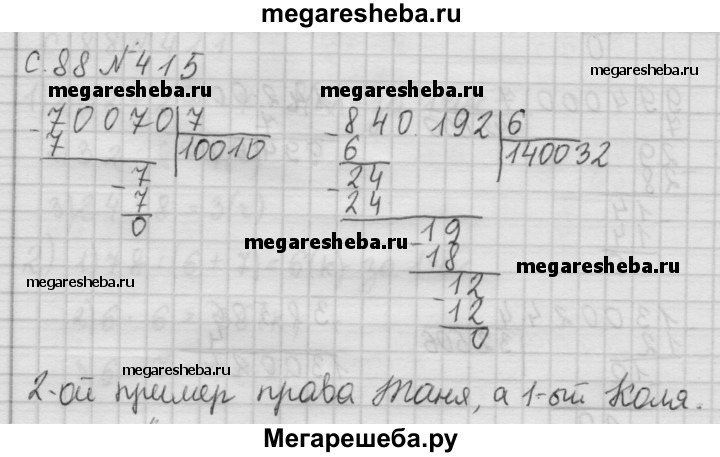 megaresheba.ru
с.88 №415
megaresheba.ru
megaresheba.ru
70070 7
7 10010
- 7
7
0
- 840192 6
6 140032
- 24
24
- 19
18
- 12
12
0
megaresheba.ru
megaresheba.ru
megaresheba.ru
megaresheba.ru
megaresheba.ru
2-ой пример права Таня, а 1-ый Коля.
Мегарешеба.ру